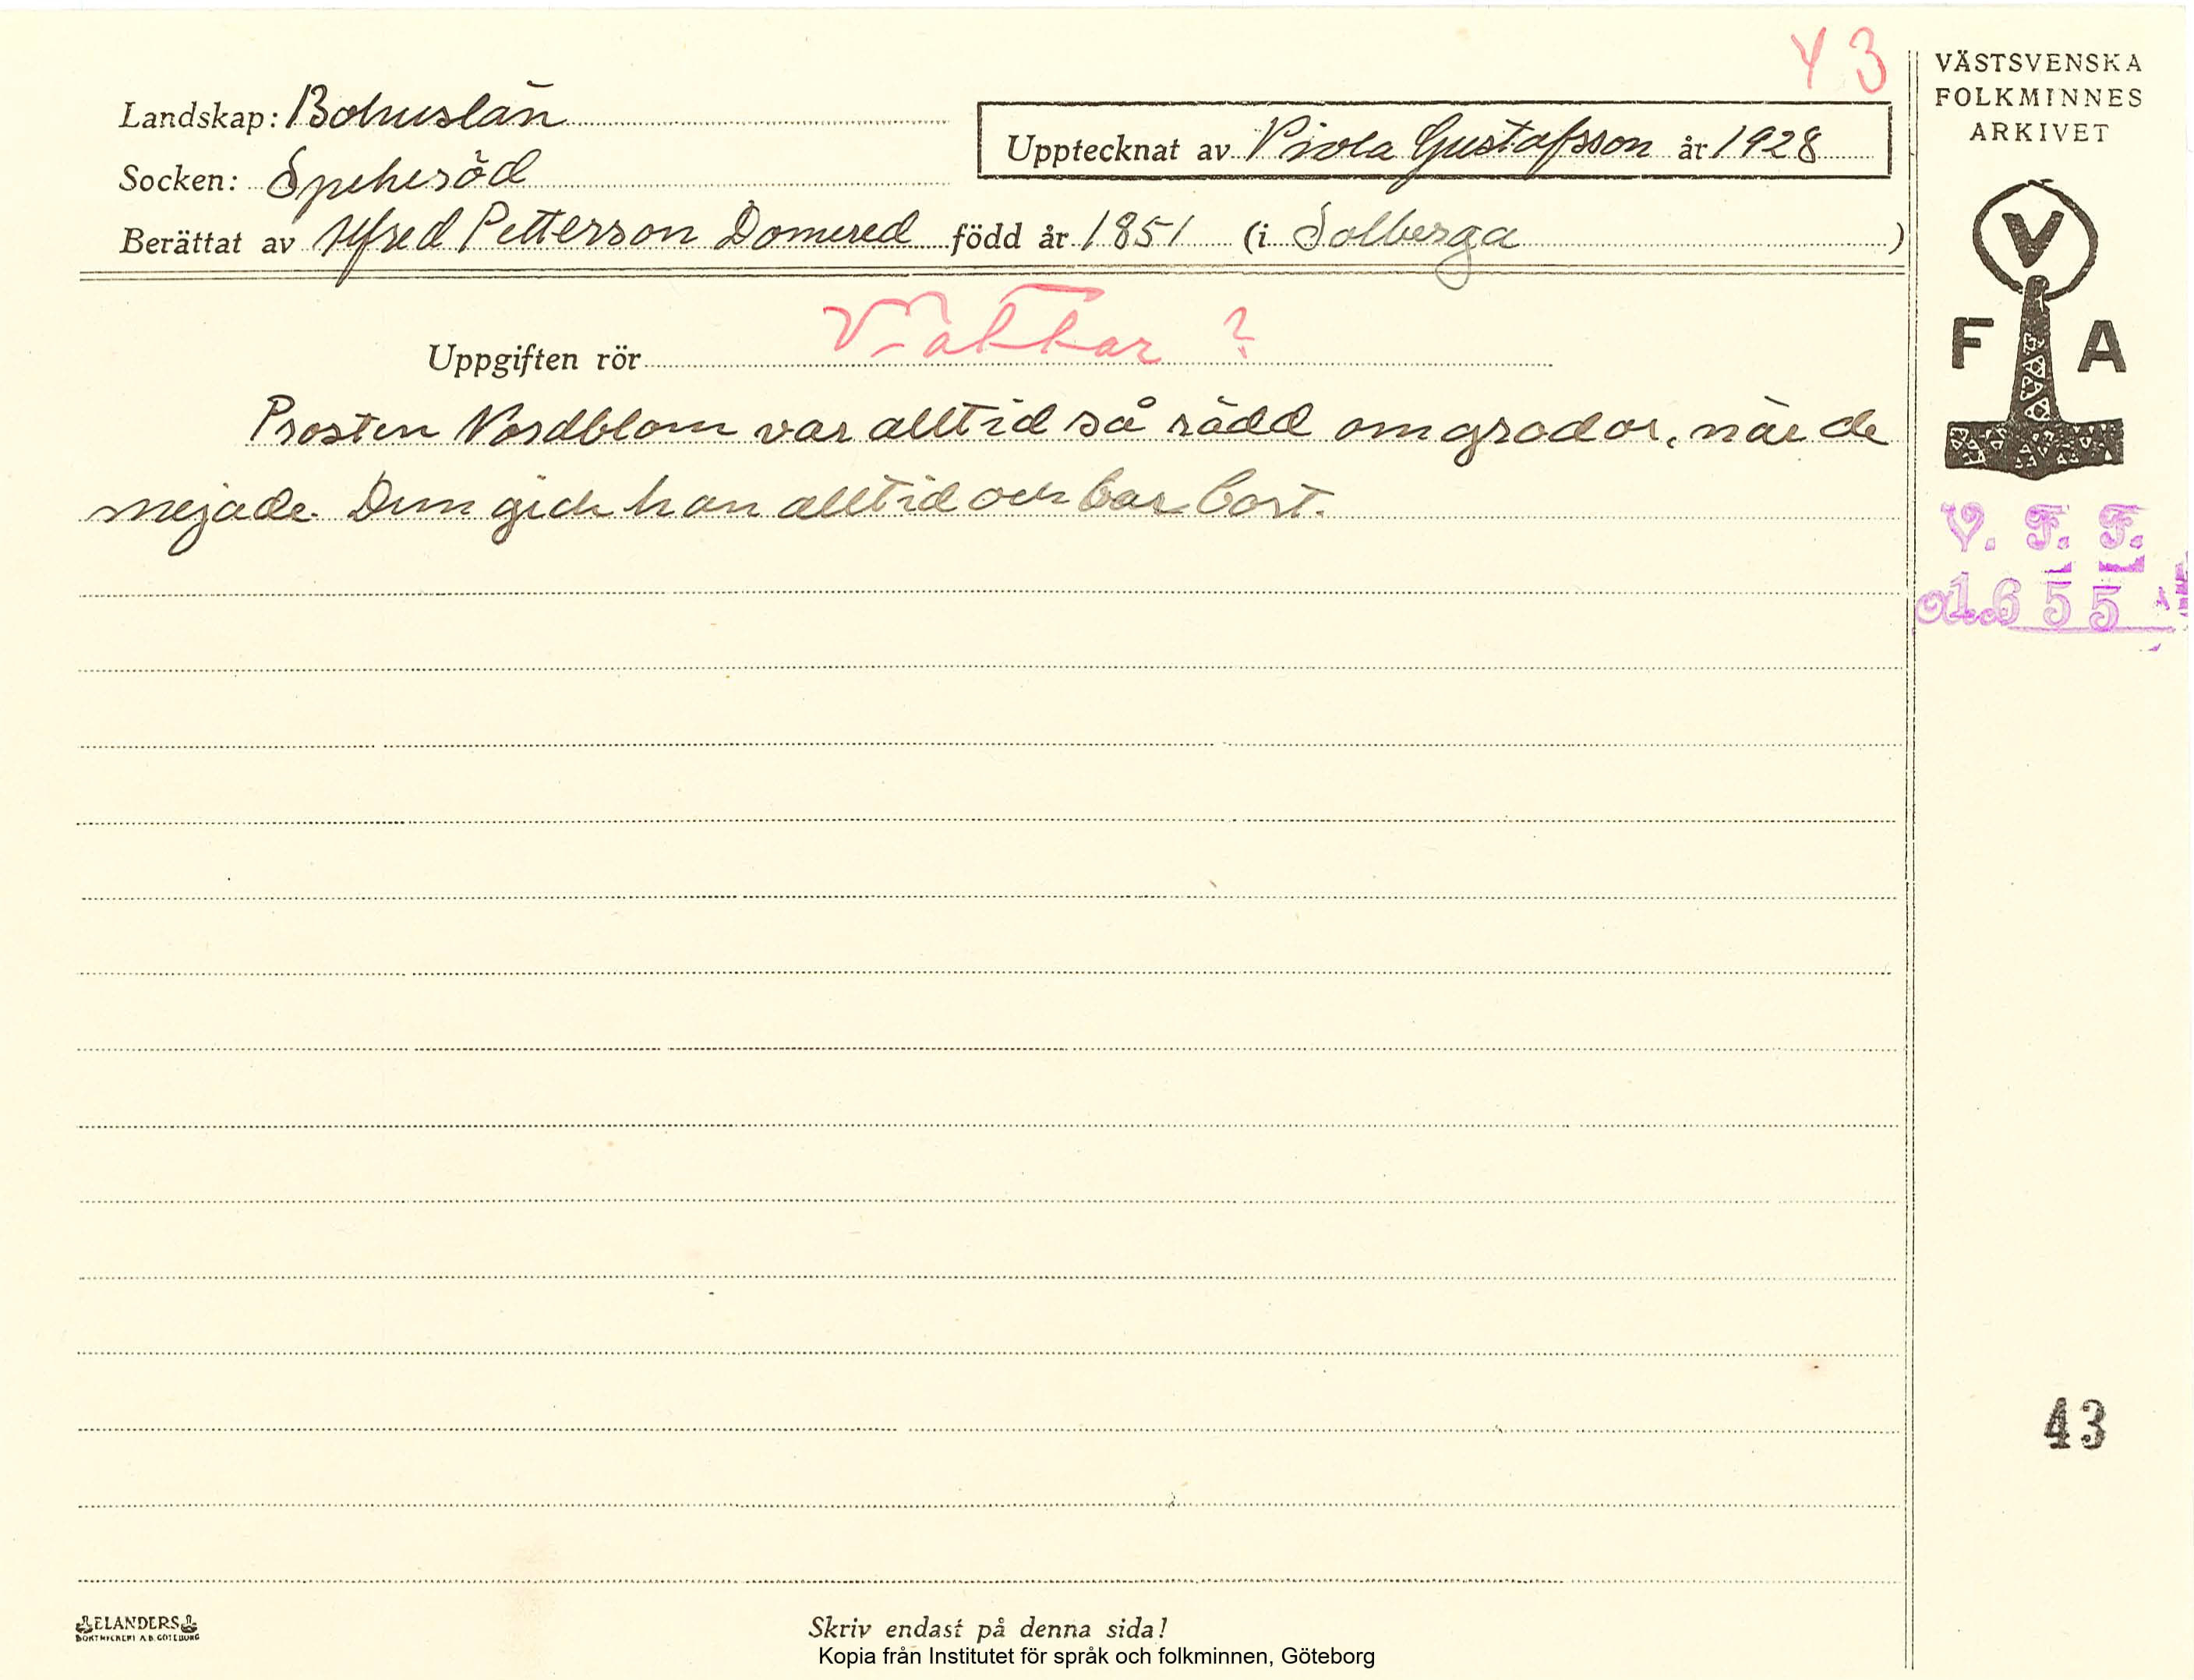 43
Landskap: Bohuslän
Socken: Spekeröd
Berättat av Alfred Petterson Domered född år 1851 (i Solberga)
Upptecknat av Viola Gustafsson år 1928
VÄSTSVENSKA
FOLKMINNES
ARKIVET
V
F A
Uppgiften rör Vättar ?
Prosten Nordblom var alltid så rädd om grodor, när de
mejade. Dem gick han alltid och bar bort.
V. F. F.
1655
43
ELANDERS
BOKTRYCKERI A.B. GÖTEBORG
Skriv endast på denna sida!
Kopia från Institutet för språk och folkminnen, Göteborg